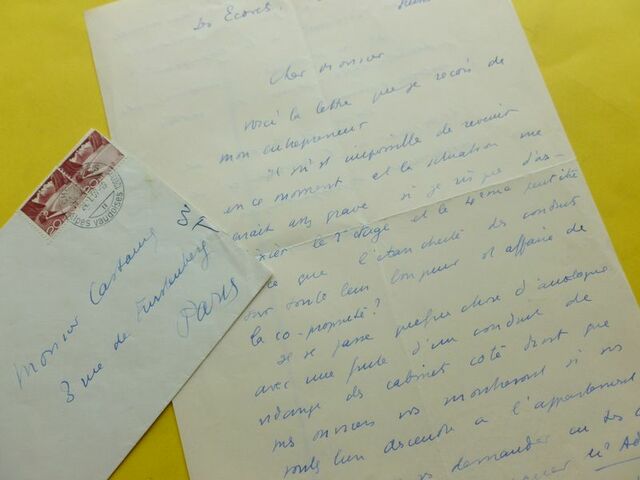 Les Ecovets,
Cher Monsieur
Voici la lettre que je reçois de
mon entrepreneur
Il m'est impossible de revenir
en ce moment et la situation me
parait assez grave si je risque d'as-
le 3e étage et le 4ème peut être
ce que l'étanchéité des conduits
sur toute leur longueur est affaire de
la co-propriété?
Il se passe quelque chose d'analogue
avec une fuite d'un conduit de
vidange des cabinets coté droit que
mes ouvriers vos montreront si vos
voulez bien descendre a l'appartement
vs demander
20
20
Alpes vaudoises
Monsieur Castaing
3 rue de Furstenberg
Paris